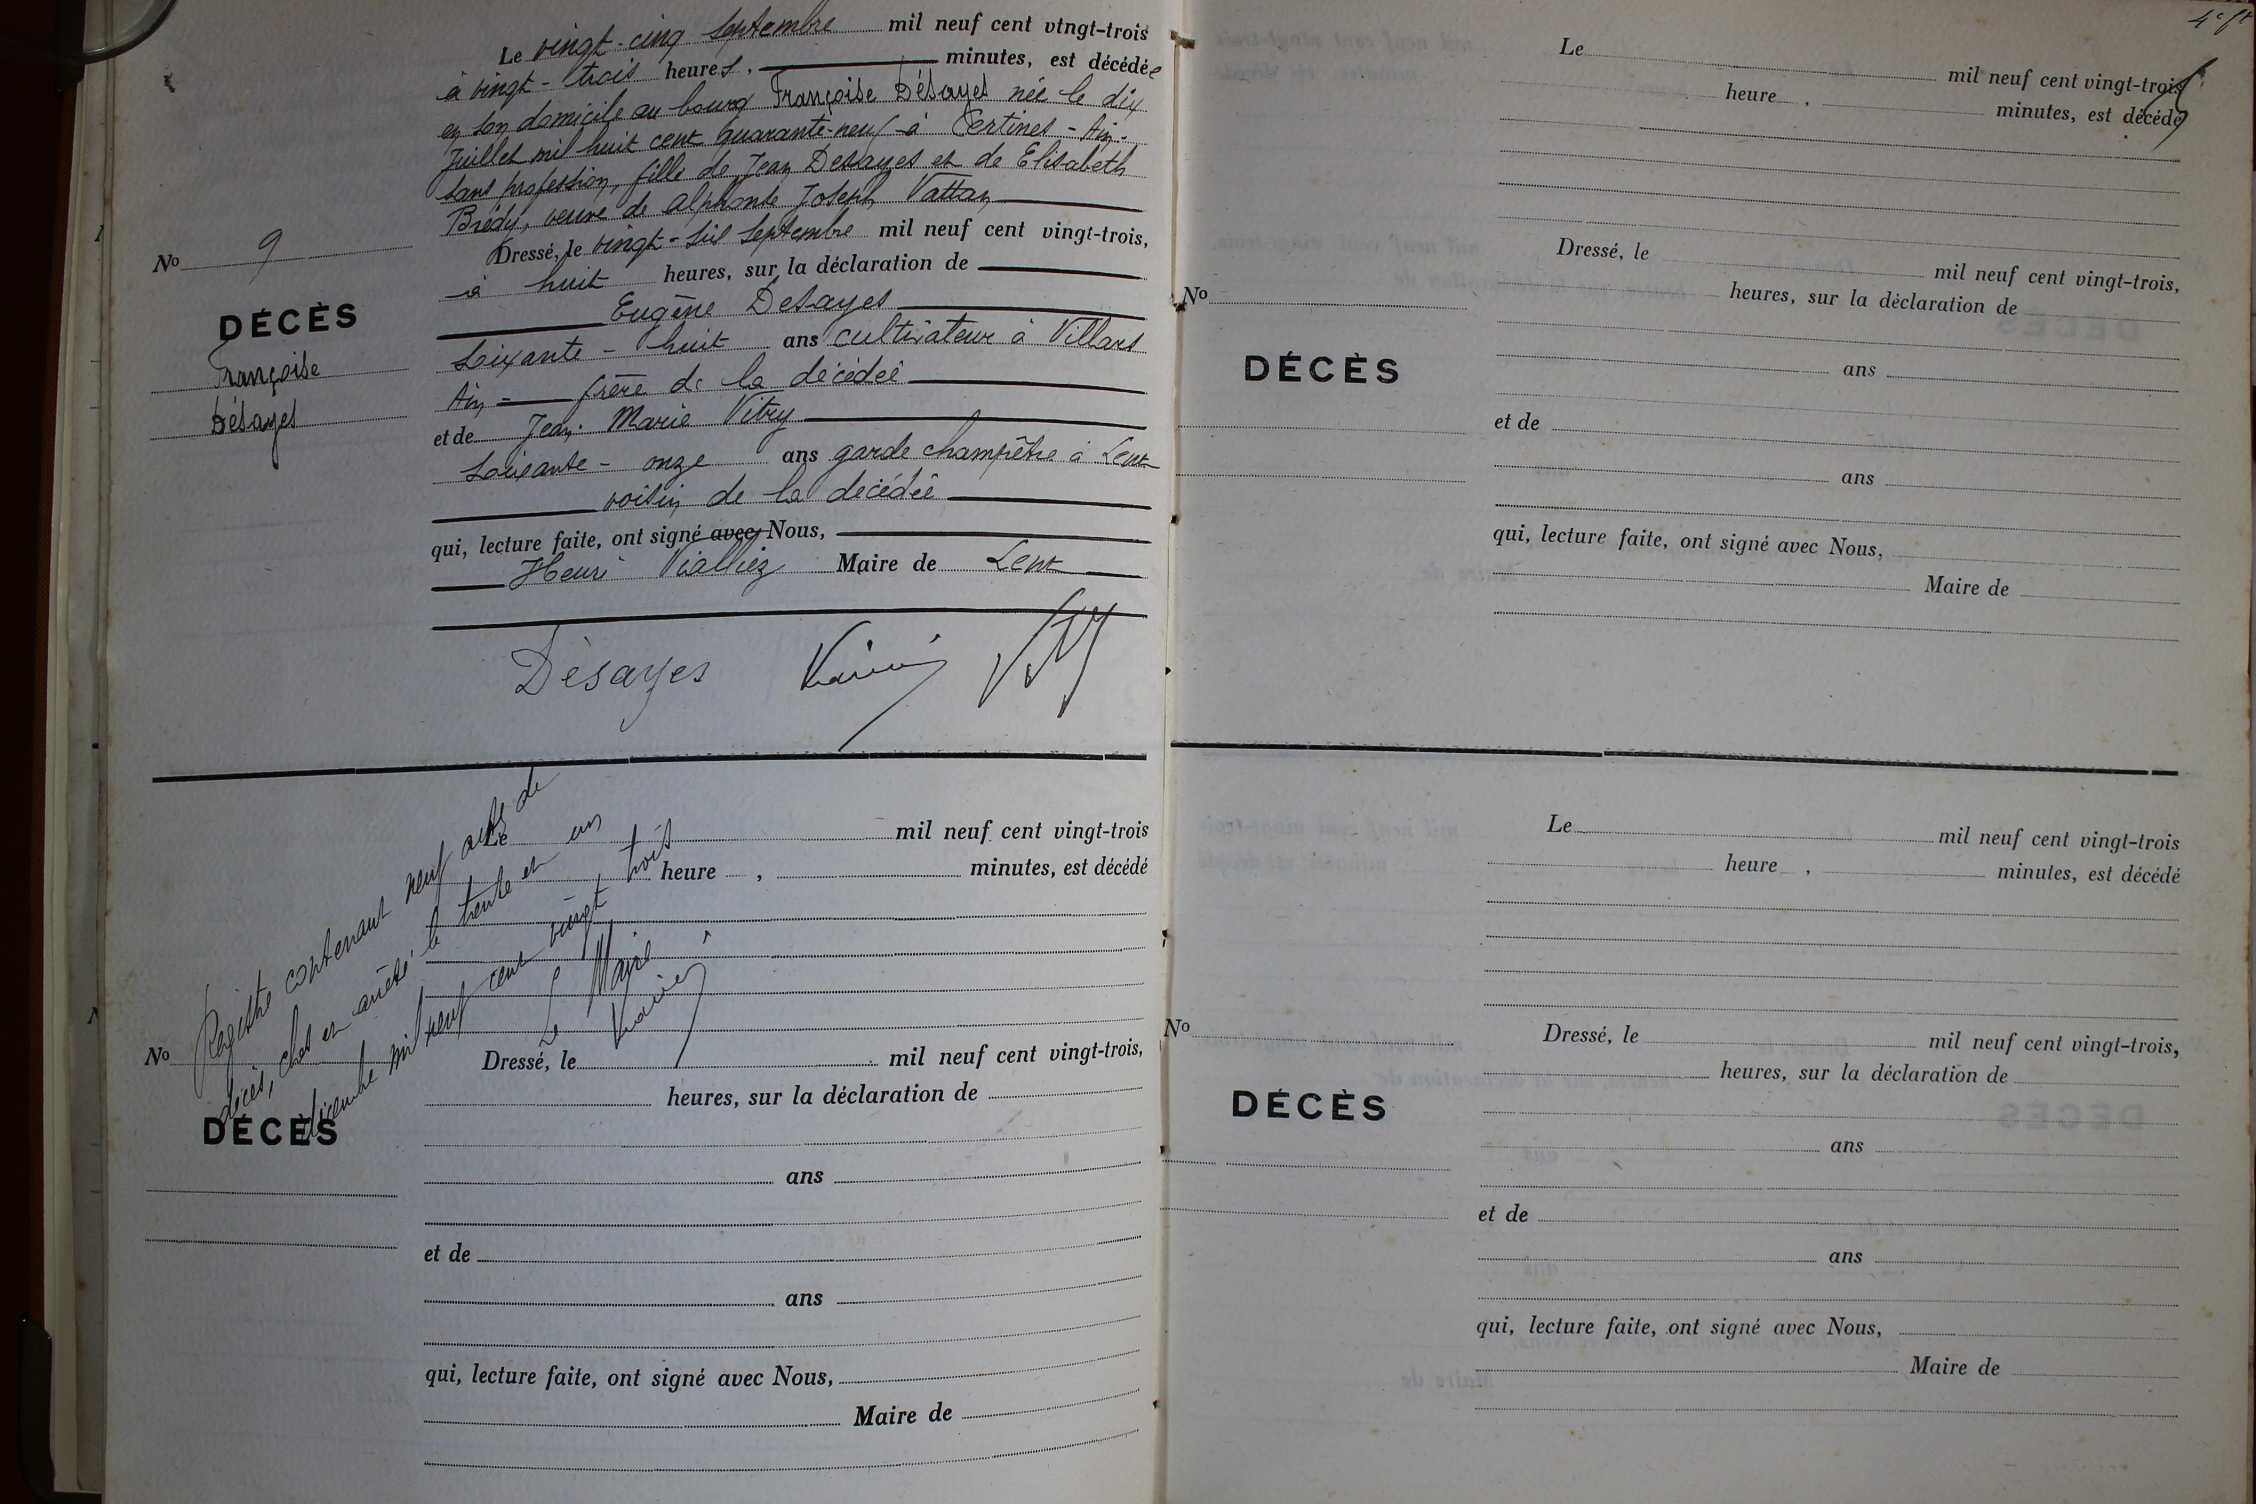 Le vingt-cinq Septembre mil neuf cent vingt-trois
à vingt-trois heures, minutes, est décédée
en son domicile au bourg Françoise Désayes née le dix
Juillet mil huit cent quarante-neuf à Certines - Ain -
sans profession, fille de Jean Desayes et de Elisabeth
Brédy, veuve de Alphonse Joseph Vattan
Dressé, le vingt-six Septembre mil neuf cent vingt-trois,
à huit heures, sur la déclaration de
Eugène Desayes
Soixante-huit ans cultivateur à Villars
Ain - frère de la décédée
et de Jean-Marie Vitry
Soixante-onze ans garde champêtre à Lent
voisin de la décédée
qui, lecture faite, ont signé avec Nous,
Henri Vialliez Maire de Lent
No 9
DÉCÈS
Françoise
Désayes
Désayes
Registre contenant neuf actes de
décès, clos et arrêté le trente et un
décembre mil neuf cent vingt trois
Le Maire
Le mil neuf cent vingt-trois
heure , minutes, est décédé
No
DÉCÈS
Dressé, le mil neuf cent vingt-trois,
heures, sur la déclaration de
ans
et de
ans
qui, lecture faite, ont signé avec Nous,
Maire de
Le mil neuf cent vingt-trois
heure , minutes, est décédé
No
DÉCÈS
Dressé, le mil neuf cent vingt-trois,
heures, sur la déclaration de
ans
et de
ans
qui, lecture faite, ont signé avec Nous,
Maire de
Le mil neuf cent vingt-trois
heure , minutes, est décédé
No
DÉCÈS
Dressé, le mil neuf cent vingt-trois,
heures, sur la déclaration de
ans
et de
ans
qui, lecture faite, ont signé avec Nous,
Maire de